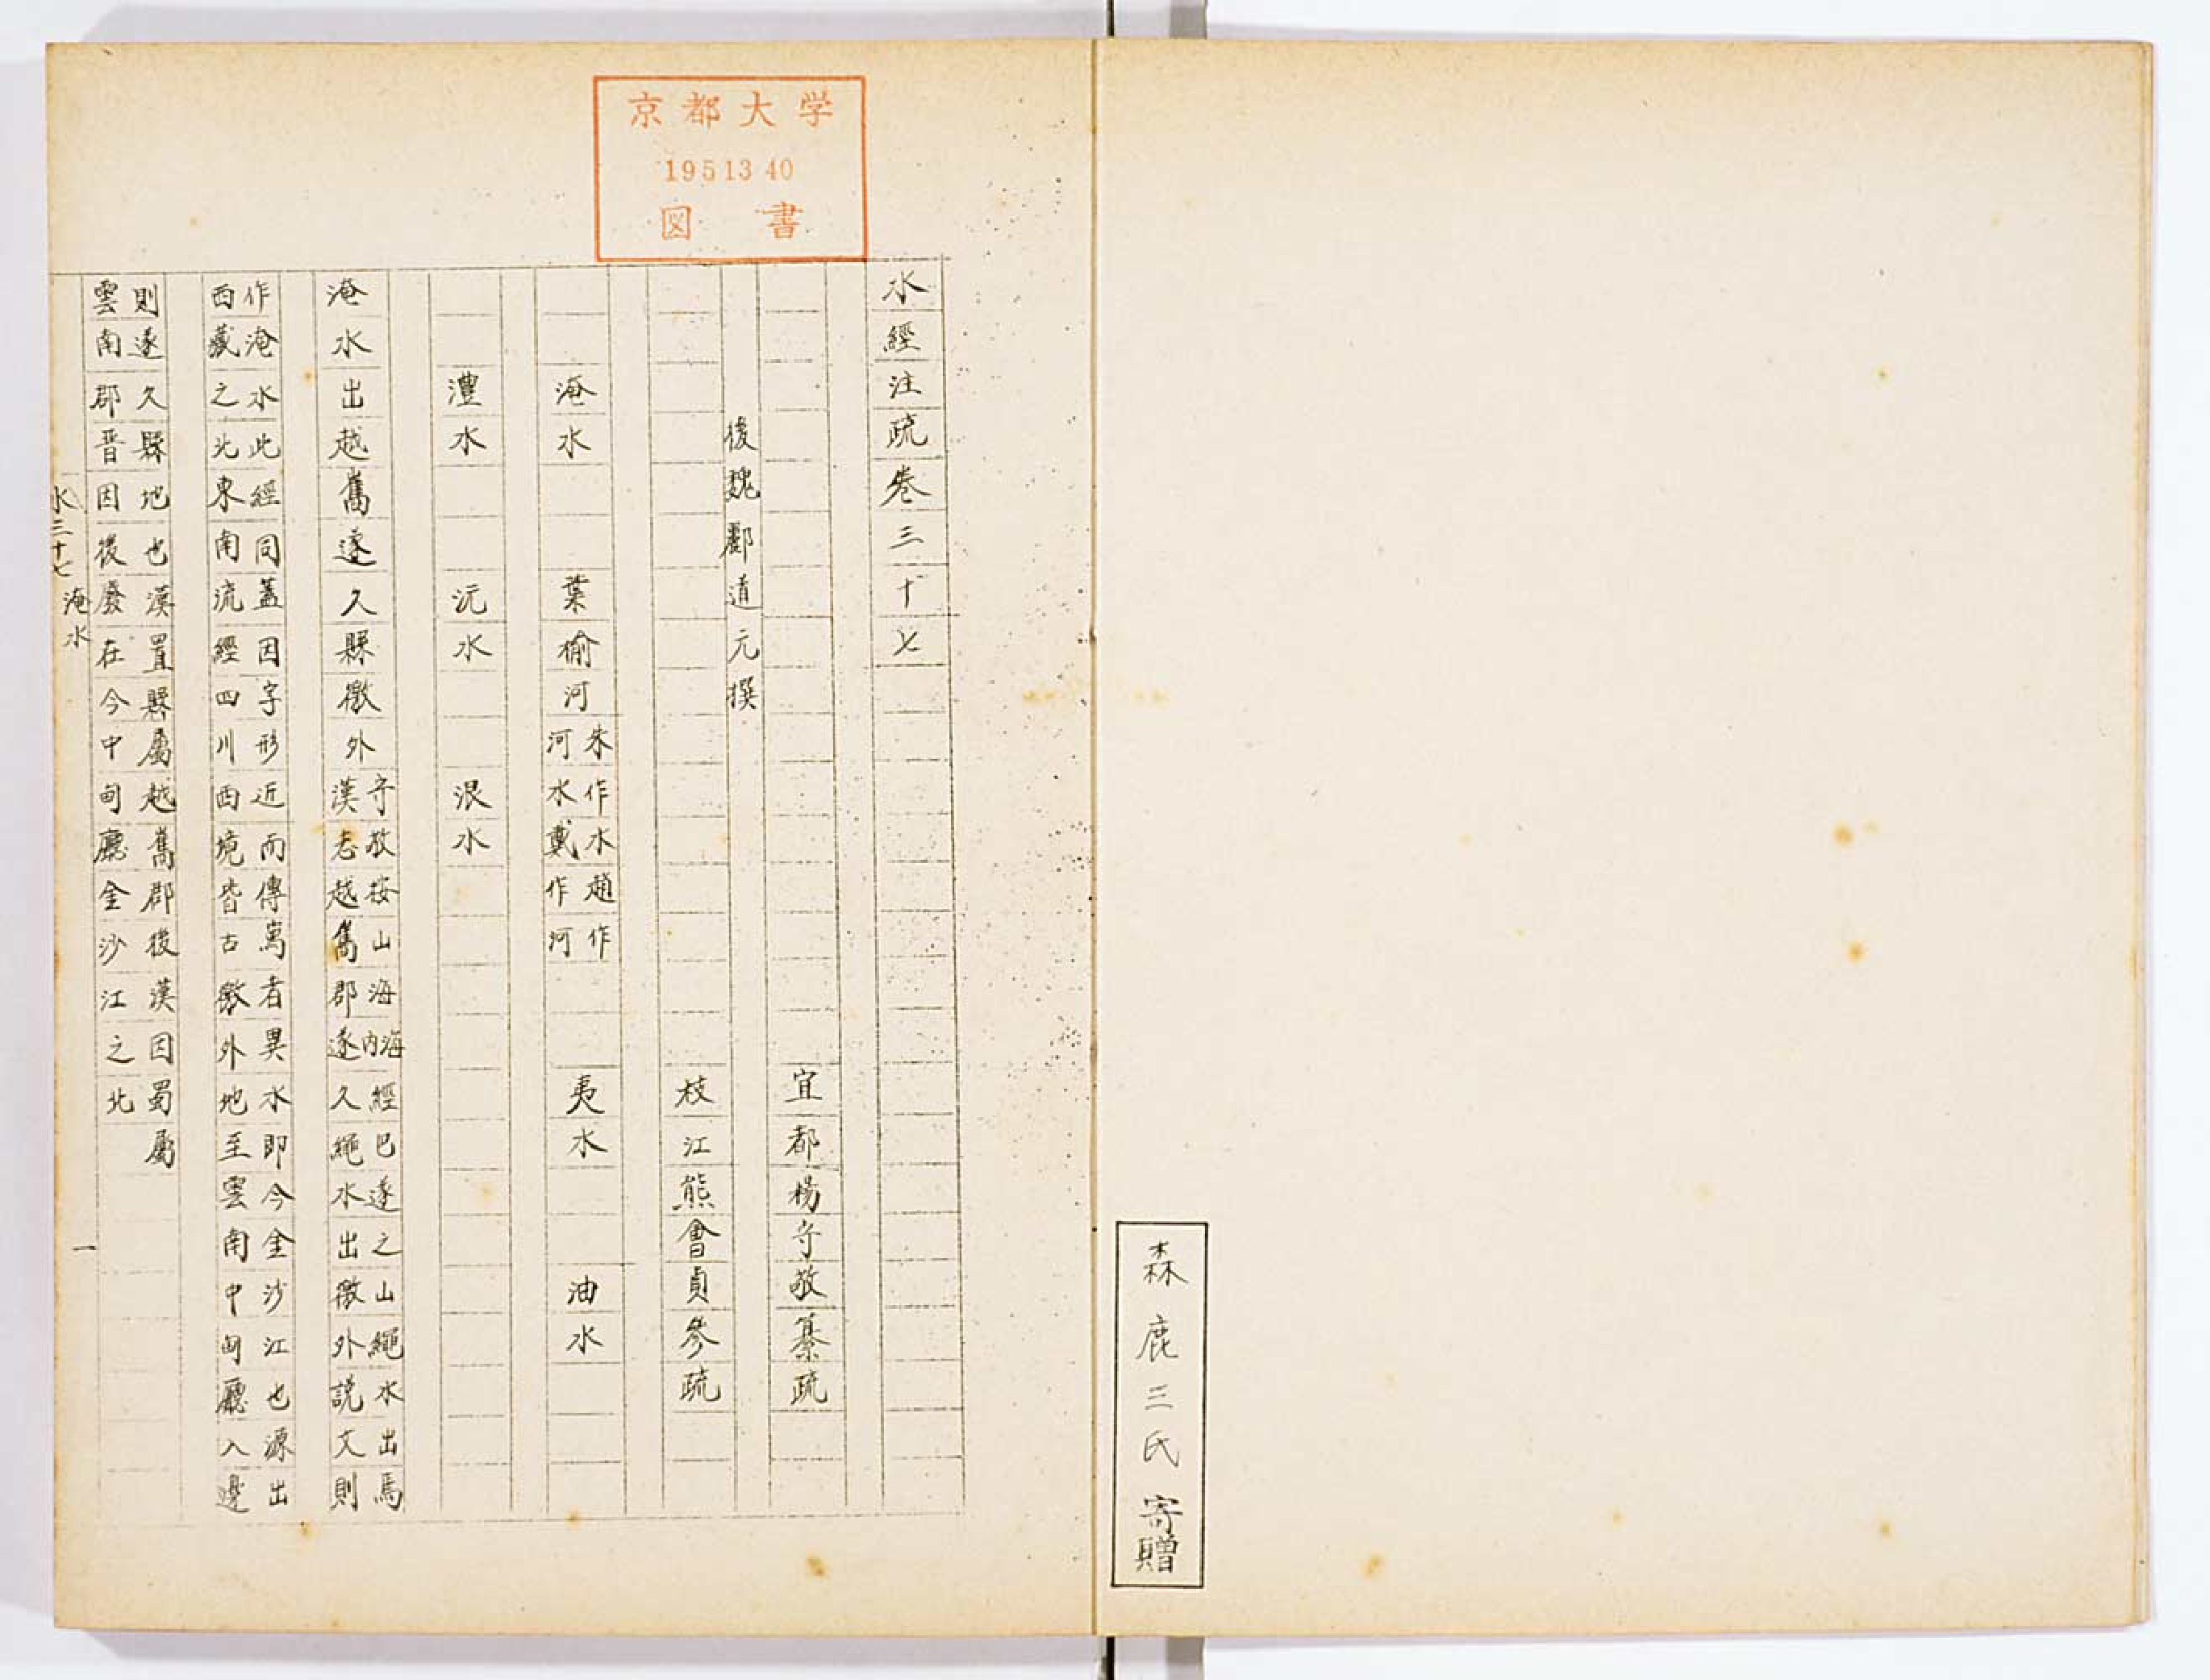 森鹿三氏寄贈
京都大学
19513 40
図書
水經注疏卷三十七
宜都楊守敬纂疏
後魏酈道元撰
枝江熊會貞參疏
淹水 葉榆河 朱作水趙作
河水戴作河 夷水 油水
澧水 沅水 泿水
淹水出越巂遂久縣徼外 守敬按山海海内經巴遂之山繩水出焉
漢志越巂郡遂久繩水出徼外説文則
作淹水此經同蓋因字形近而傳寫者異水即今金沙江也源出
西藏之北東南流經四川西境皆古徼外地至雲南中甸廳入邊
則遂久縣地也漢置縣屬越巂郡後漢因蜀屬
雲南郡晋因後廢在今中甸廳金沙江之北
水三十七 淹水 一